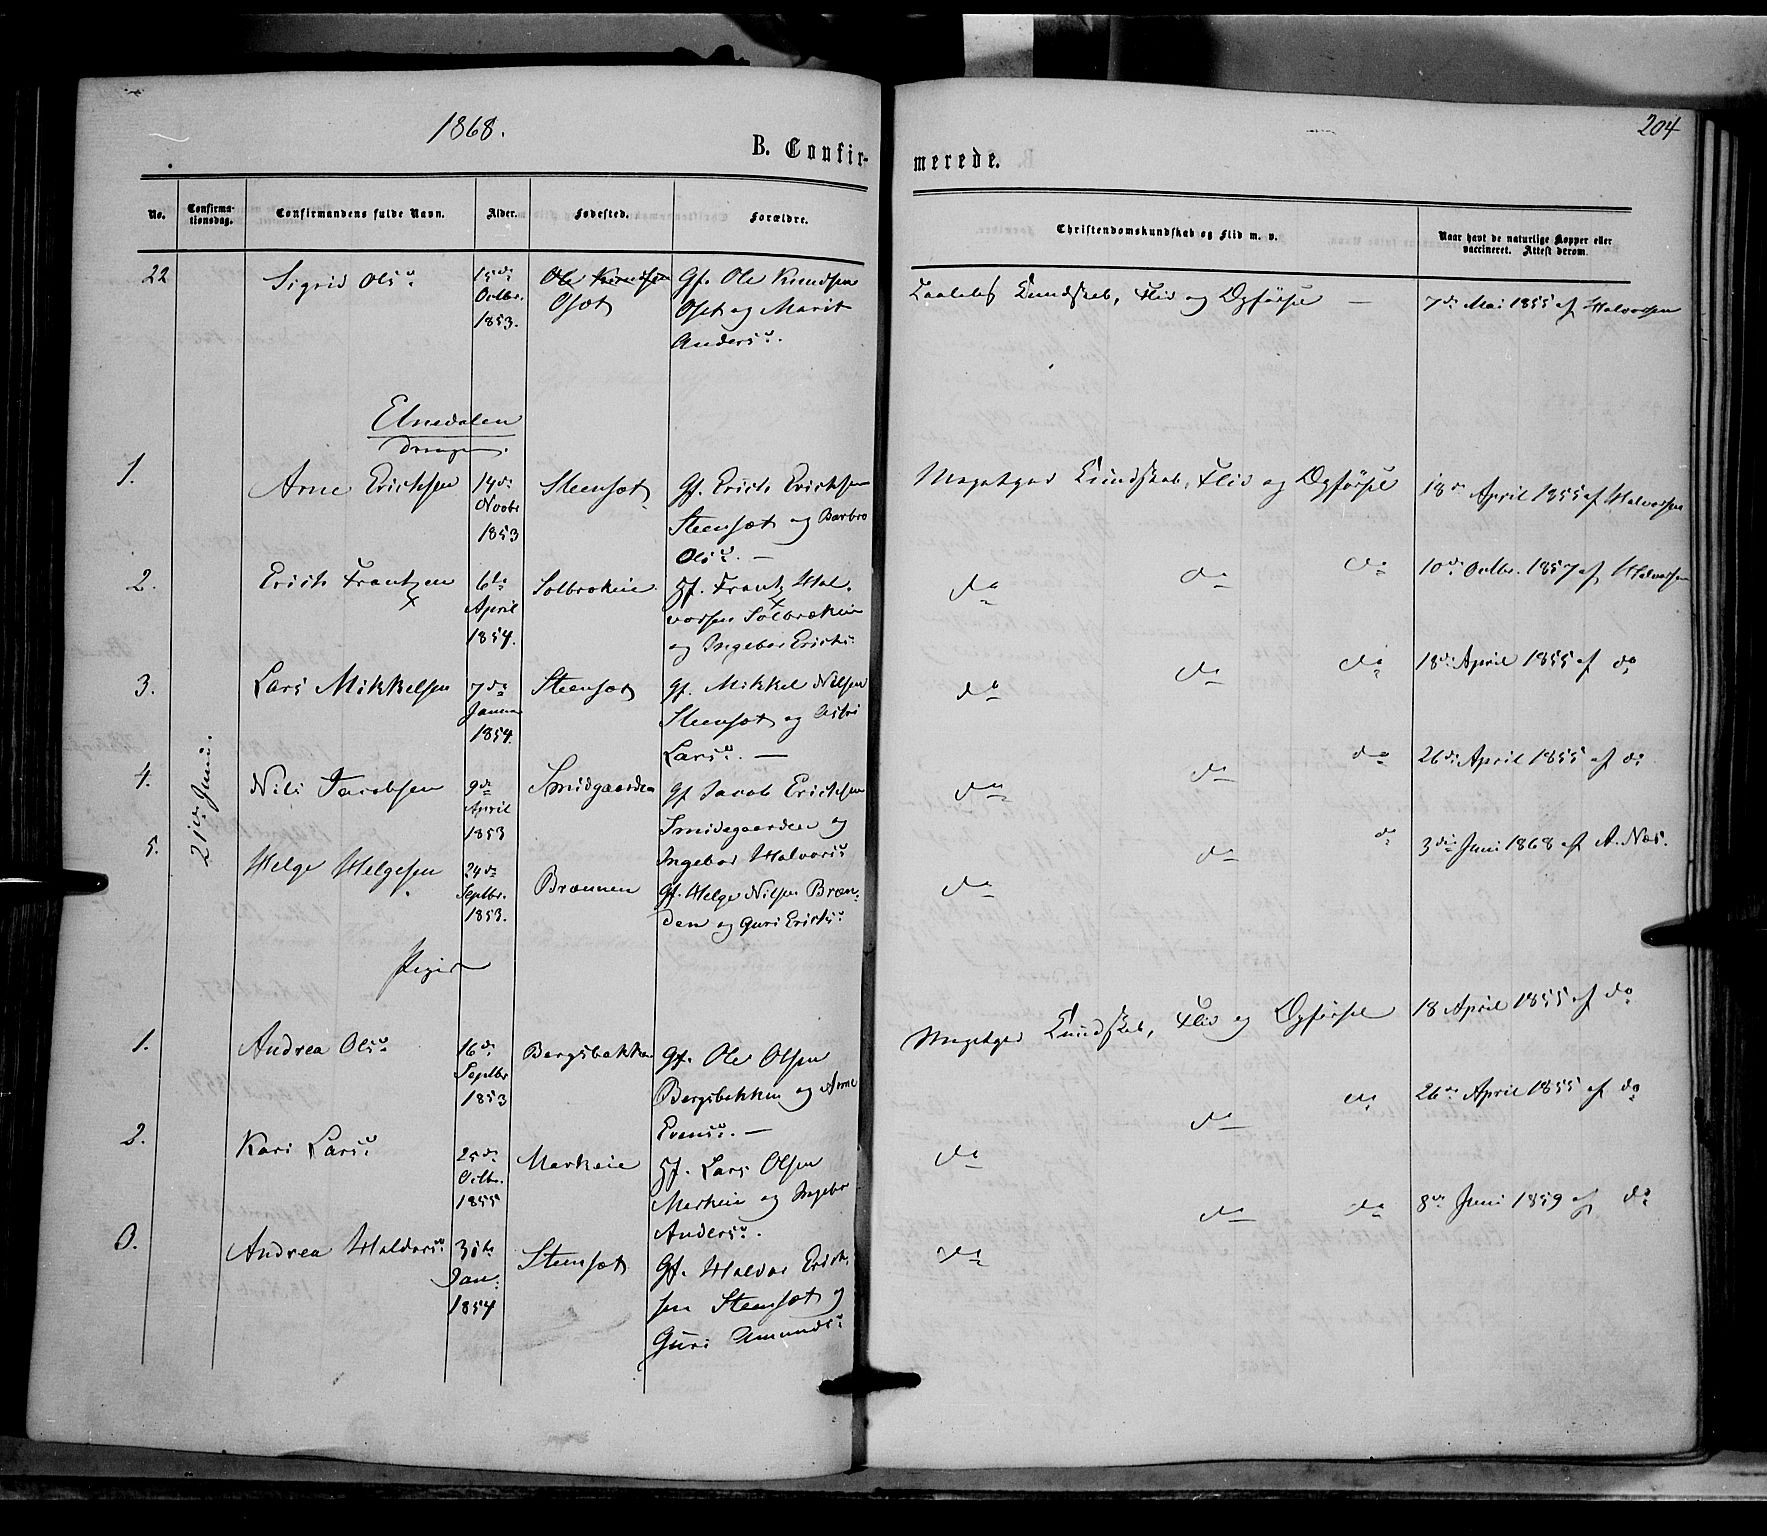 1868.
204
B. Confirmerede.
No.
Confirmationsdag.
Confirmandens fulde Navn.
Alder.
Fødested.
Forældre.
Christendomskundskab og Flid m. v.
Naar havt de naturlige Kopper eller vaccineret. Attest derom.
22
Sigrid Olsd.
15de
Octbr.
1853.
Ole Knudsen
Osæt
Gf. Ole Knudsen
Osæt og Marit
Andersd.
Taalelig Kundskab, Flid og Opførsel —
7de Mai 1855 af Halvorsen
Etnedalen
Drenge.
21de Juni.
1.
Arne Erichsen
14de
Novbr
1853
Steensæt
Gf. Erich Erichsen
Steensæt og Barbro
Olsd. —
Megetgod Kundskab, Flid og Opførsel
18de April 1855 af Halvorsen
2.
Erich Frantzen
6te
April
1854.
Solbrekeie
Gf. Frantz Halvorsen Solbrækeie
og Ingebor Erichsd.
do do do
10de Octbr. 1857 af Halvorsen
3.
Lars Mikkelsen
7de
Januar
1854.
Steensæt
Gf. Mikkel Nilsen
Steensæt og Astri
Larsd. —
do do do
18de April 1855 af do
4.
Nils Jacobsen
9de
April
1853
Smidgaarden
Gf. Jacob Erichsen
Smidegaarden og
Ingebor Halvorsd.
do do do
26de April 1855 af do
5.
Helge Helgesen
24de
Septbr.
1853.
Brænnen
Gf. Helge Nilsen Brænden og Guri Erichsd.
do do do
3die Juni 1868 af A. Næs.
Piger
1.
Andrea Olsd.
16de
Septbr
1853
Bergsbakken
Gf. Ole Olsen
Bergsbakken og Arne
Evensd. —
Megetgod Kundskab, Flid og Opførsel
18 April 1855 af do
2.
Kari Larsd.
25de
Octbr.
1855
Markeie
Gf. Lars Olsen
Markeie og Ingebor
Andersd.
do do do
26de April 1855 af do
3.
Andrea Halvorsd.
Jan:
1854
Steensæt
Gf. Halvor Erichsen Steensæt og
Guri Amundsd.
do do do
8de Juni 1859 af do